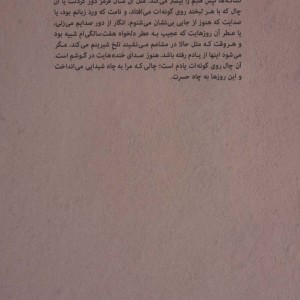 چال که با هر لبخند روی گونه‌ات می‌افتاد، و نامت که ورد زبانم بود، یا
صدایت که هنوز از جایی بی‌نشان می‌شنوم. انگار از دور صدایم می‌زنی.
یا عطر آن روزهایت که عجیب به عطر دلخواه هفت‌سالگی‌ام شبیه بود
و هروقت که مثل حالا در مشامم می‌نشیند تلخ شیرینم می‌کند. مگر
می‌شود اینها از یادم رفته باشد. هنوز صدای خنده‌هایت در گوشم است.
آن چال روی گونه‌ات یادم است؛ چالی که مرا به چاه شیدایی می‌انداخت
و این روزها به چاه حسرت.